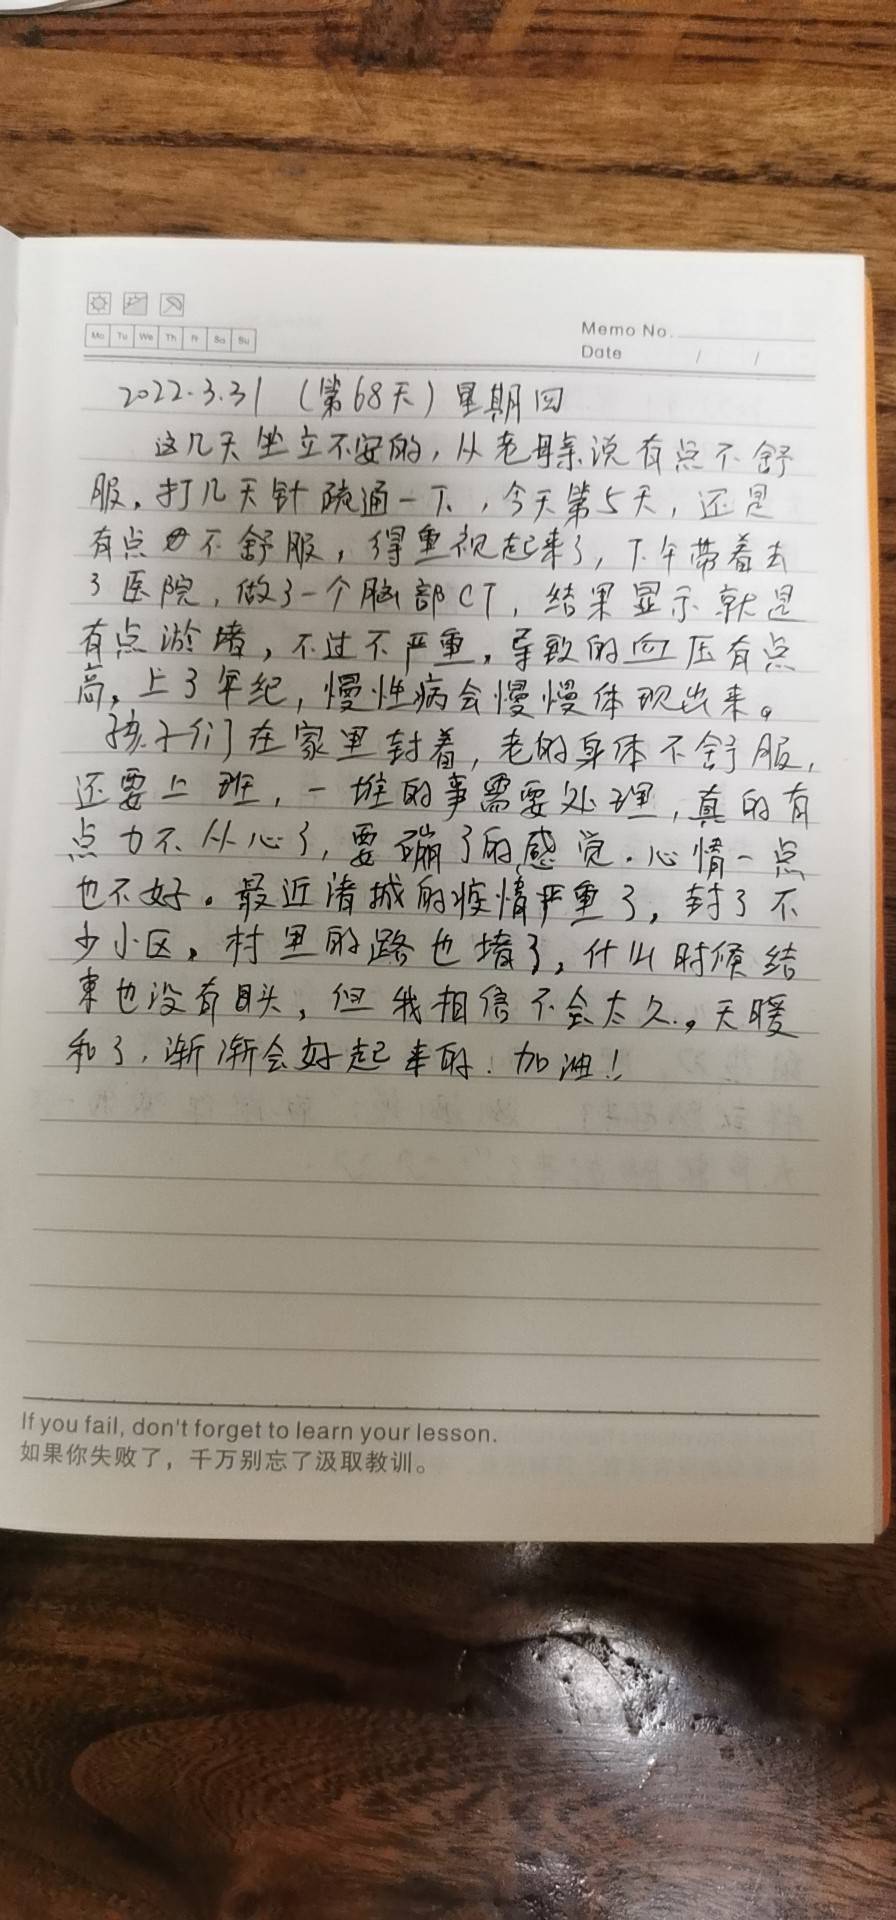 Mo Tu We Th Fr Sa Su
Memo No.
Date / /
2022.3.31 (第68天) 星期四
这几天坐立不安的,从老母亲说有点不舒
服,打几天针疏通一下,今天第5天,还是
有点不舒服,得重视起来了,下午带着去
了医院,做了一个脑部CT,结果显示就是
有点淤堵,不过不严重,导致的血压有点
高,上了年纪,慢性病会慢慢体现出来。
孩子们在家里封着,老的身体不舒服,
还要上班,一堆的事需要处理,真的有
点力不从心了,要蹦了的感觉.心情一点
也不好。最近诸城的疫情严重了,封了不
少小区,村里的路也堵了,什么时候结
束也没有目头,但我相信不会太久,天暖
和了,渐渐会好起来的!加油!
If you fail, don't forget to learn your lesson.
如果你失败了,千万别忘了汲取教训。